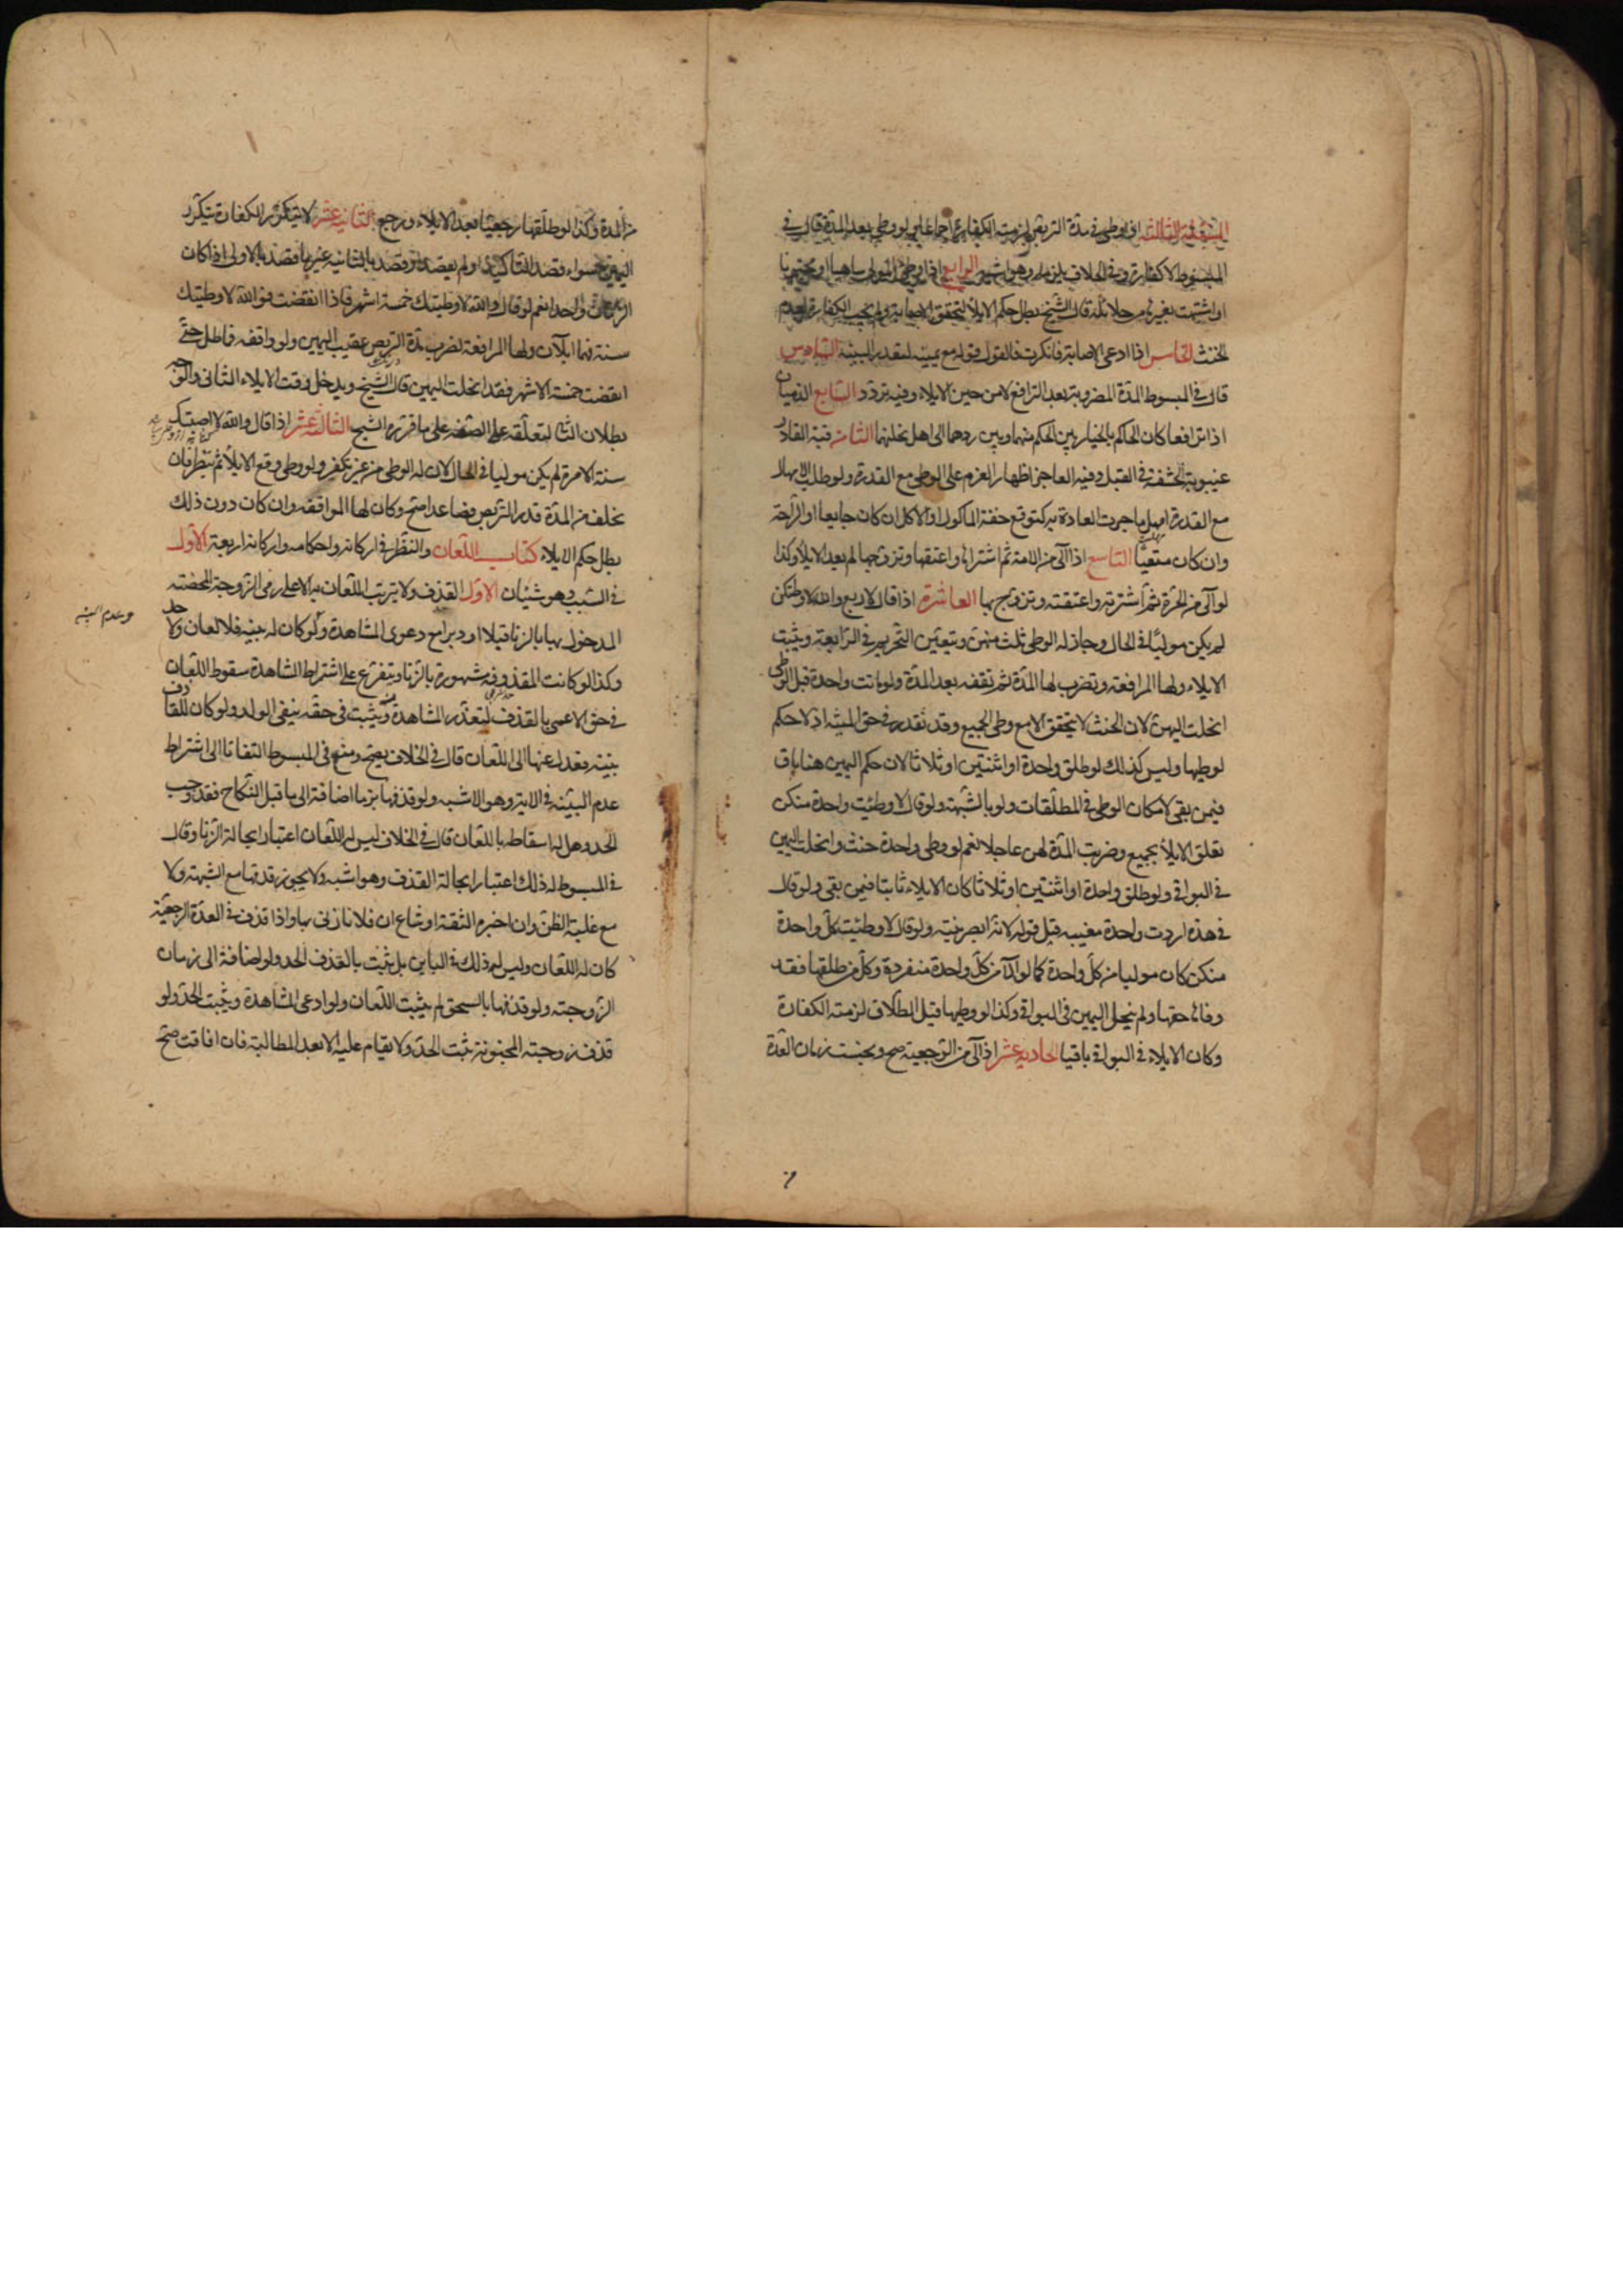 المسئلة الثالثة اذا وطئ في مدة التربص لزمته الكفارة اجماعا ولو وطئ بعد المدة قال في
المبسوط لا كفارة وفي الخلاف يلزمه وهو اشبه الرابع اذا وطئ المولى ساهيا او مجنونا
او اشتبهت بغيرها من حلائله قال الشيخ بطل حكم الايلاء لتحقق الاصابة ولم يجب الكفارة لعدم
الحنث الخامس اذا ادعى الاصابة فانكرت فالقول قوله مع يمينه لتعذر البينة السادس
قال في المبسوط المدة المضروبة بعد الترافع لا من حين الايلاء وفيه تردد السابع الذميان
اذا ترافعا كان الحاكم بالخيار بين الحكم بينهما وبين ردهما الى اهل نحلتهما الثامن فئة القادر
غيبوبة الحشفة في القبل وفئة العاجز اظهار العزم على الوطي مع القدرة ولو طلب الامهال
مع القدرة امهل ما جرت العادة به كتوقع خفة الماكول او الاكل ان كان جايعا او الراحة
وان كان متعبا التاسع اذا آلى من الامة ثم اشتراها واعتقها وتزوجها لم يعد الايلاء وكذا
لو آلى من الحرة ثم اشترته واعتقته وتزوج بها العاشرة اذا قال لاربع والله لا وطئتكن
لم يكن موليا في الحال وجاز له الوطي ثلث منهن ويتعين التحريم في الرابعة ويثبت
الايلاء ولها المرافعة وتضرب لها المدة ثم تقفه بعد المدة ولو ماتت واحدة قبل الوطي
انحلت اليمين لان الحنث لا يتحقق الا مع وطي الجميع وقد تعذر في حق الميتة اذ لا حكم
لوطيها وليس كذلك لو طلق واحدة او اثنتين او ثلاثا لان حكم اليمين هنا باق
فيمن بقي لامكان الوطي في المطلقات ولو بالشبهة ولو قال لا وطئت واحدة منكن
تعلق الايلاء بجميع وضربت المدة لهن عاجلا نعم لو وطئ واحدة حنث وانحلت اليمين
في البواقي ولو طلق واحدة او اثنتين او ثلاثا كان الايلاء ثابتا فيمن بقي ولو قال
في هذه اردت واحدة معينة قبل قوله لانه ابصر بنيته ولو قال لا وطئت كل واحدة
منكن كان موليا من كل واحدة كما لو آلى من كل واحدة منفردة وكل من طلقها فقد
وفاها حقها ولم ينحل اليمين في البواقي وكذا لو وطيها قبل الطلاق لزمته الكفارة
وكان الايلاء في البواقي باقيا الحادية عشر اذا آلى من الرجعية صح ويحتسب زمان العدة
من المدة وكذا لو طلقها رجعيا بعد الايلاء ورجع الثانية عشر لا يتكرر الكفارة بتكرر
اليمين سواء قصد التاكيد او لم يقصد او قصد بالثانية غير ما قصد بالاولى اذا كان
الزمان واحدا نعم لو قال والله لا وطيتك خمسة اشهر فاذا انقضت فوالله لا وطيتك
سنة فهما ايلآن ولها المرافعة لضرب مدة التربص عقيب اليمين ولو واقفه فاطل حتى
انقضت خمسة الاشهر فقد انحلت اليمين قال الشيخ ويدخل وقت الايلاء الثاني والوجه
بطلان الثاني لتعلقه على الصفة على ما قرره الشيخ الثالثة عشر اذا قال والله لا اصبتك
سنة الا مرة لم يكن موليا في الحال لان له الوطي من غير تكفير ولو وطئ وقع الايلاء ثم ينظر فان
تخلف من المدة قدر التربص فصاعدا صح وكان لها المواقفة وان كان دون ذلك
بطل حكم الايلاء كتاب اللعان والنظر في اركانه واحكامه واركانه اربعة الاول
في السبب وهو شيئان الاول القذف ولا يترتب اللعان به الا على رمي الزوجة المحصنة
المدخول بها بالزنا قبلا او دبرا مع دعوى المشاهدة ولو كان له بينة فلا لعان ولا حد
وعدم البينه
وكذا لو كانت المقذوفة مشهورة بالزنا ويتفرع على اشتراط المشاهدة سقوط اللعان
في حق الاعمى بالقذف لتعذر المشاهدة ويثبت في حقه بنفي الولد ولو كان للقاذف
بينة فعدل عنها الى اللعان قال في الخلاف يصح ومنع في المبسوط التفاتا الى اشتراط
عدم البينة في الاية وهو الاشبه ولو قذفها بزنا اضافه الى ما قبل النكاح فقد وجب
الحد وهل له اسقاطه باللعان قال في الخلاف ليس له اللعان اعتبارا بحالة الزنا وقال
في المبسوط له ذلك اعتبارا بحالة القذف وهو اشبه ولا يجوز قذفها مع الشبهة ولا
مع غلبة الظن وان اخبره الثقة او شاع ان فلانا زنى بها واذا قذف في العدة الرجعية
كان له اللعان وليس له ذلك في الباين بل يثبت بالقذف الحد ولو اضافه الى زمان
الزوجية ولو قذفها بالسحق لم يثبت اللعان ولو ادعى المشاهدة ويثبت الحد ولو
قذف زوجته المجنونة ثبت الحد ولا يقام عليه الا بعد المطالبة فان افاقت صح